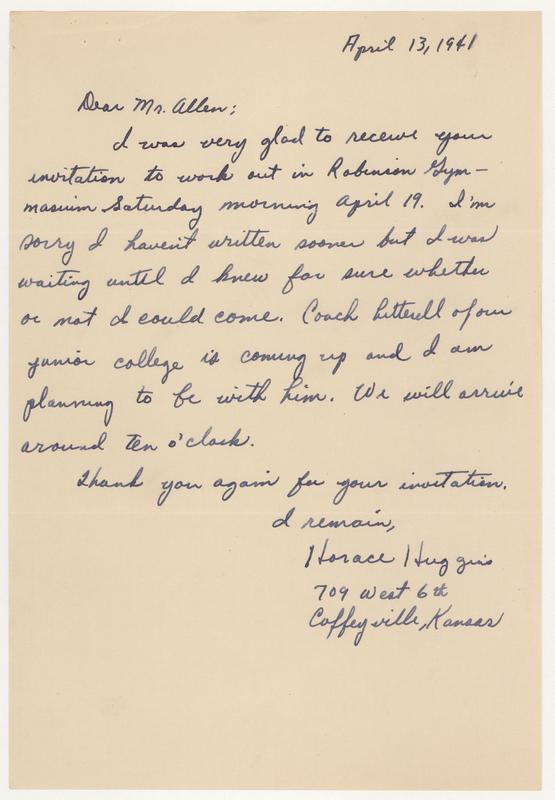 April 13, 1941
Dear Mr. Allen;
I was very glad to receive your
invitation to work out in Robinson Gym-
nasium Saturday morning April 19. I'm
sorry I haven't written sooner but I was
waiting until I knew for sure whether
or not I could come. Coach of our
junior college is coming up and I am
planning to be with him. We will arrive
around ten o'clock.
Thank you again for your invitation.
I remain,
Horace Huggins
709 West 6th
Coffeyville, Kansas